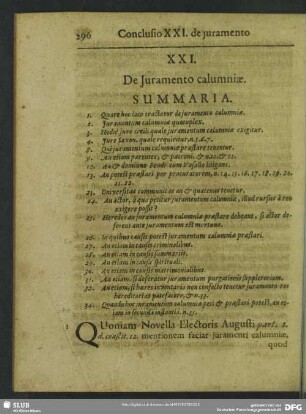 296 Conclusio XXI. de juramento
XXI.
De Juramento calumniæ.
SUMMARIA.
1. Quare hoc loco tractetur de juramento calumniæ.
2. Juramentum calumniæ quotuplex.
3. Hodiè jure civili quale juramentum calumniæ exigitur.
4. Jure Saxon. quale requiritur. n. 5. 6. 7.
8. Qui juramentum calumniæ præstare tenentur.
9. An etiam parentes, & patroni. & n. 10. & 11.
12. An & dominus feudi cum Vasallo litigans.
13. An possit præstari per procuratorem, n. 14. 15. 16. 17. 18. 19. 20.
21. 22.
23. Universitas committit as an & quatenus tenetur.
24. An actor, à quo petitur juramentum calumniæ, illud rursus à reo
exigere possit?
25. Heredes an juramentum calumniæ præstare debeant, si actor de-
ferens ante juramentum est mortuus.
26. In quibus causis petit juramentum calumniæ præstari.
27. An etiam in causis criminalibus.
28. An etiam in causis summariis.
29. An etiam in causa spirituali.
30. An etiam in causis matrimonialibus.
31. An etiam, si deferatur juramentum purgationis suppletorium.
32. An etiam, si heres inventario non confecto tenetur juramento res
hereditarias patefacere, & n. 33.
34. Quando hoc juramentum calumniæ peti & præstari potest, an et-
jam in secunda instantia. n. 35.
1 QUoniam Novella Electoris Augusti part. 1.
d. constit. 12. mentionem faciat juramenti calumniæ,
quod